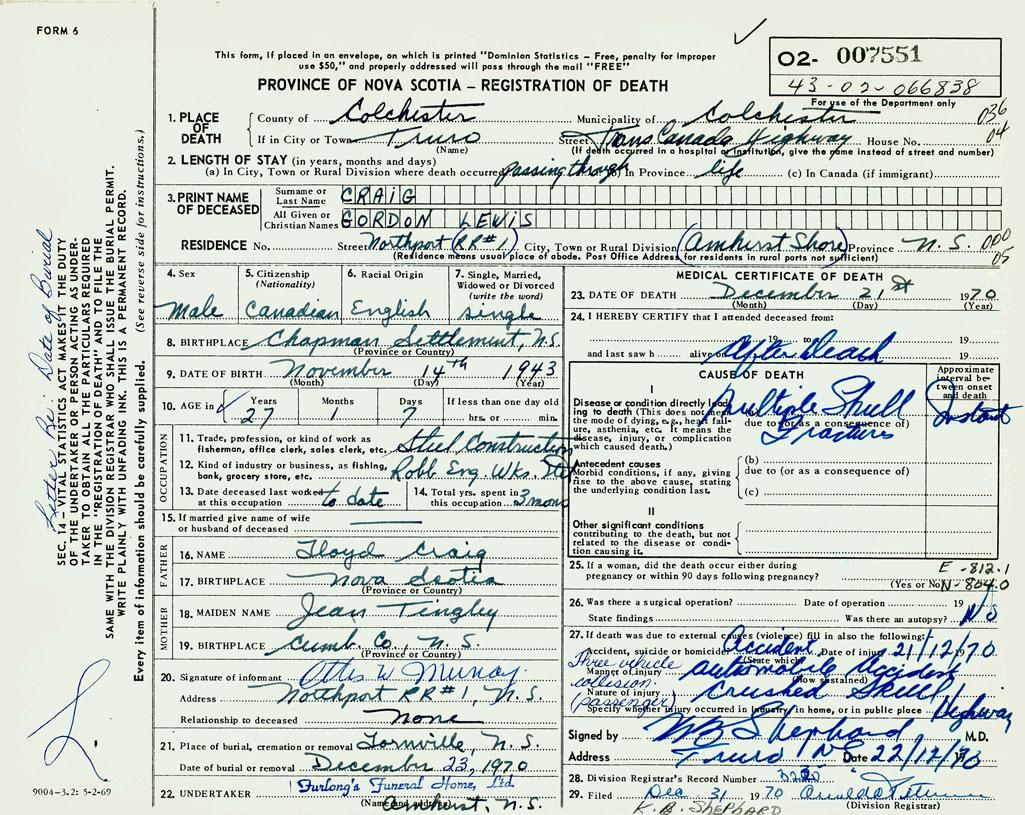 FORM 6
This form, if placed in an envelope, on which is printed "Dominion Statistics – Free, penalty for improper
use $50," and properly addressed will pass through the mail "FREE"
PROVINCE OF NOVA SCOTIA – REGISTRATION OF DEATH
02- 007551
43-02-066838
For use of the Department only
036
04
1. PLACE OF DEATH
County of Colchester Municipality of Colchester
If in City or Town Truro Street Trans Canada Highway House No.
(Name) (If death occurred in a hospital or institution, give the name instead of street and number)
2. LENGTH OF STAY (in years, months and days)
(a) In City, Town or Rural Division where death occurred passing through (b) In Province life (c) In Canada (if immigrant)
3. PRINT NAME OF DECEASED
Surname or Last Name CRAIG
All Given or Christian Names GORDON LEWIS
RESIDENCE No. Street Northport (RR#1) City, Town or Rural Division (Amherst Shore) Province N.S. 000
05
(Residence means usual place of abode. Post Office Address for residents in rural parts not sufficient)
4. Sex
Male
5. Citizenship
(Nationality)
Canadian
6. Racial Origin
English
7. Single, Married,
Widowed or Divorced
(write the word)
single
8. BIRTHPLACE Chapman Settlement, N.S.
(Province or Country)
9. DATE OF BIRTH November 14th 1943
(Month) (Day) (Year)
10. AGE in Years Months Days If less than one day old
27 1 7 hrs. or min.
OCCUPATION
11. Trade, profession, or kind of work as
fisherman, office clerk, sales clerk, etc. Steel Construction
12. Kind of industry or business, as fishing,
bank, grocery store, etc. Robb Eng. Wks.
13. Date deceased last worked
at this occupation to date
14. Total yrs. spent in
this occupation 3 mons
15. If married give name of wife
or husband of deceased
FATHER
16. NAME Lloyd Craig
17. BIRTHPLACE Nova Scotia
(Province or Country)
MOTHER
18. MAIDEN NAME Jean Tingley
19. BIRTHPLACE Cumb. Co., N.S.
(Province or Country)
20. Signature of informant Otis W
Address Northport RR#1, N.S.
Relationship to deceased none
21. Place of burial, cremation or removal N.S.
Date of burial or removal December 23, 1970
22. UNDERTAKER Furlong's Funeral Home, Ltd.
(Name and address)
Amherst, N.S.
MEDICAL CERTIFICATE OF DEATH
23. DATE OF DEATH December 21st 1970
(Month) (Day) (Year)
24. I HEREBY CERTIFY that I attended deceased from:
19 to 19
and last saw h alive on After Death 19
CAUSE OF DEATH
Approximate
interval be-
tween onset
and death
I
Disease or condition directly lead-
ing to death (This does not mean
the mode of dying, e.g., heart fail-
ure, asthenia, etc. It means the
disease, injury, or complication
which caused death.)
Multiple Skull
due to (or as a consequence of)
Fractures
Instant
Antecedent causes
Morbid conditions, if any, giving
rise to the above cause, stating
the underlying condition last.
(b)
due to (or as a consequence of)
(c)
II
Other significant conditions
contributing to the death, but not
related to the disease or condi-
tion causing it.
25. If a woman, did the death occur either during
pregnancy or within 90 days following pregnancy?
(Yes or No)
E-812.1
N-804.0
26. Was there a surgical operation? Date of operation 19
State findings Was there an autopsy? No
27. If death was due to external causes (violence) fill in also the following:
Accident, suicide or homicide? Accident Date of injury 21/12/1970
(State which)
Manner of injury automobile Accident
(How sustained)
Three vehicle
collision
(passenger)
Nature of injury Crushed Skull
Specify whether injury occurred in industry, in home, or in public place Highway
Signed by Shephard M.D.
Address Truro NS Date 22/12/1970
28. Division Registrar's Record Number
29. Filed Dec 31 1970
(Division Registrar)
K.B. SHEPHARD
Letter Re: Date of Burial
SEC. 14 – VITAL STATISTICS ACT MAKES IT THE DUTY
OF THE UNDERTAKER OR PERSON ACTING AS UNDER-
TAKER TO OBTAIN ALL THE PARTICULARS REQUIRED
IN THE "REGISTRATION OF DEATH" AND TO FILE THE
SAME WITH THE DIVISION REGISTRAR WHO SHALL ISSUE THE BURIAL PERMIT.
WRITE PLAINLY WITH UNFADING INK. THIS IS A PERMANENT RECORD.
Every item of information should be carefully supplied. (See reverse side for instructions.)
9004-3.2: 5-2-69